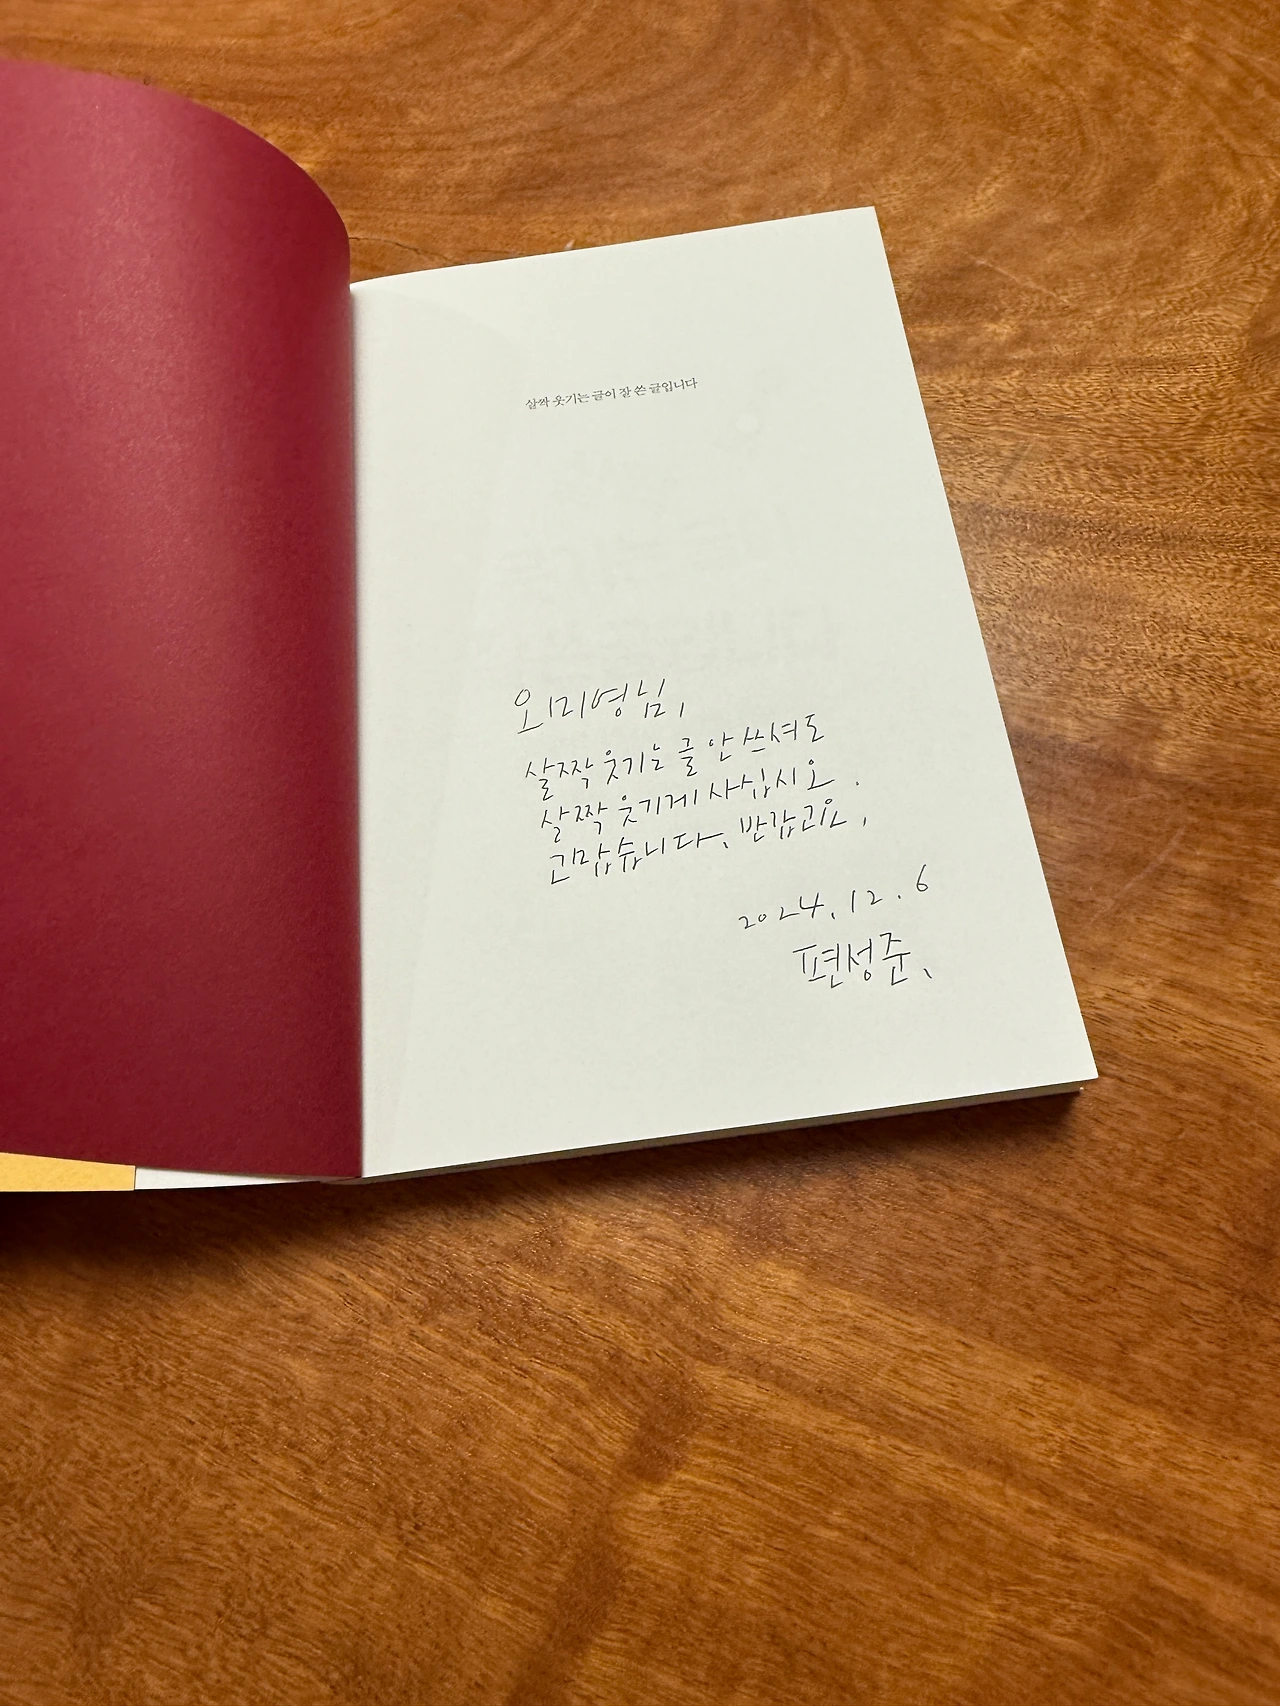 살짝 웃기는 글이 잘 쓴 글입니다
오미영님,
살짝 웃기는 글 안 쓰셔도
살짝 웃기게 사십시오.
고맙습니다, 반갑고요,
2024.12.6
편성준,